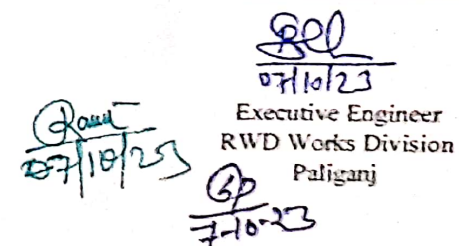 07/10/23
Executive Engineer
RWD Works Division
Paliganj
07/10/23
7-10-23